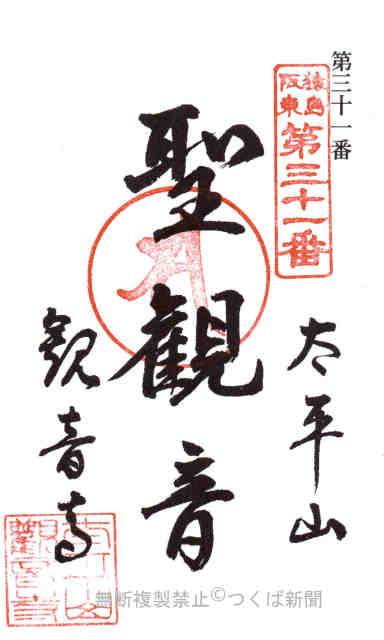 第三十一番
猿島
阪東
第三十一番
太平山
聖觀音
観音寺
無断複製禁止©つくば新聞